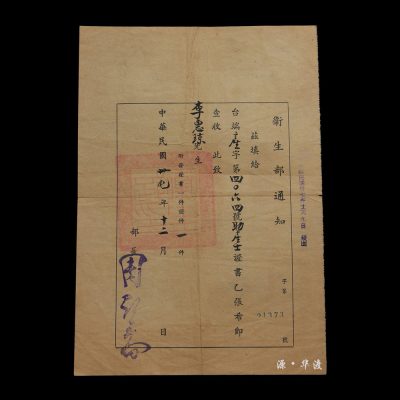 衛生部通知
字第
91373
號
茲填給
台端產字第四〇六四號助產士證書乙張希即
查收 此致
李惠 先生
附發證書一件證件一件
中華民國卅七年十二月 日
部長
源·华渡